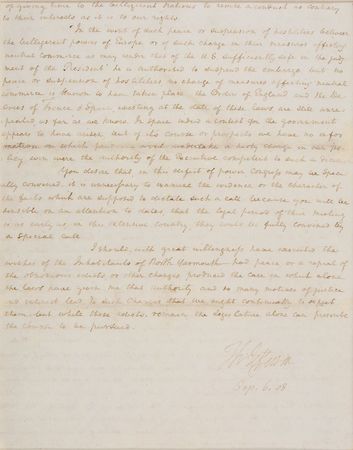 of giving time to the belligerent nations to revoke a conduct as contrary
to their interests as it is to our rights.
"In the event of such peace or suspension of hostilities between
the belligerent powers of Europe or of such change in their measures affecting
neutral commerce as may render that of the U.S. sufficiently safe in the judg-
ment of the President" he is authorised to suspend the embargo. but no
peace or suspension of hostilities, no change of measures affecting neutral
commerce is known to have taken place. the Orders of England and the De-
crees of France & Spain existing at the date of these laws are still unre-
pealed, as far as we know. In Spain indeed a contest for the government
appears to have arisen but of its course or prospects we have no infor-
mation on which prudence would undertake a hasty change in our po-
licy, even were the authority of the Executive competent to such a decision.
You desire that, in this defect of power Congress may be spe-
cially convened. it is unnecessary to examine the evidence or the character of
the facts which are supposed to dictate such a call because you will be
sensible on an attention to dates, that the legal period of their meeting
is as early as, in this extensive country, they could be fully convened by
a special call.
I should, with great willingness have executed the
wishes of the Inhabitants of North Yarmouth had peace or a repeal of
the obnoxious edicts or other changes produced the case in which alone
the laws have given me that authority and so many motives of justice
and interest lead to such changes that we ought continually to expect
them. but while these edicts remain the legislature alone can prescribe
the course to be pursued.
Th Jefferson
Sep. 6. 08